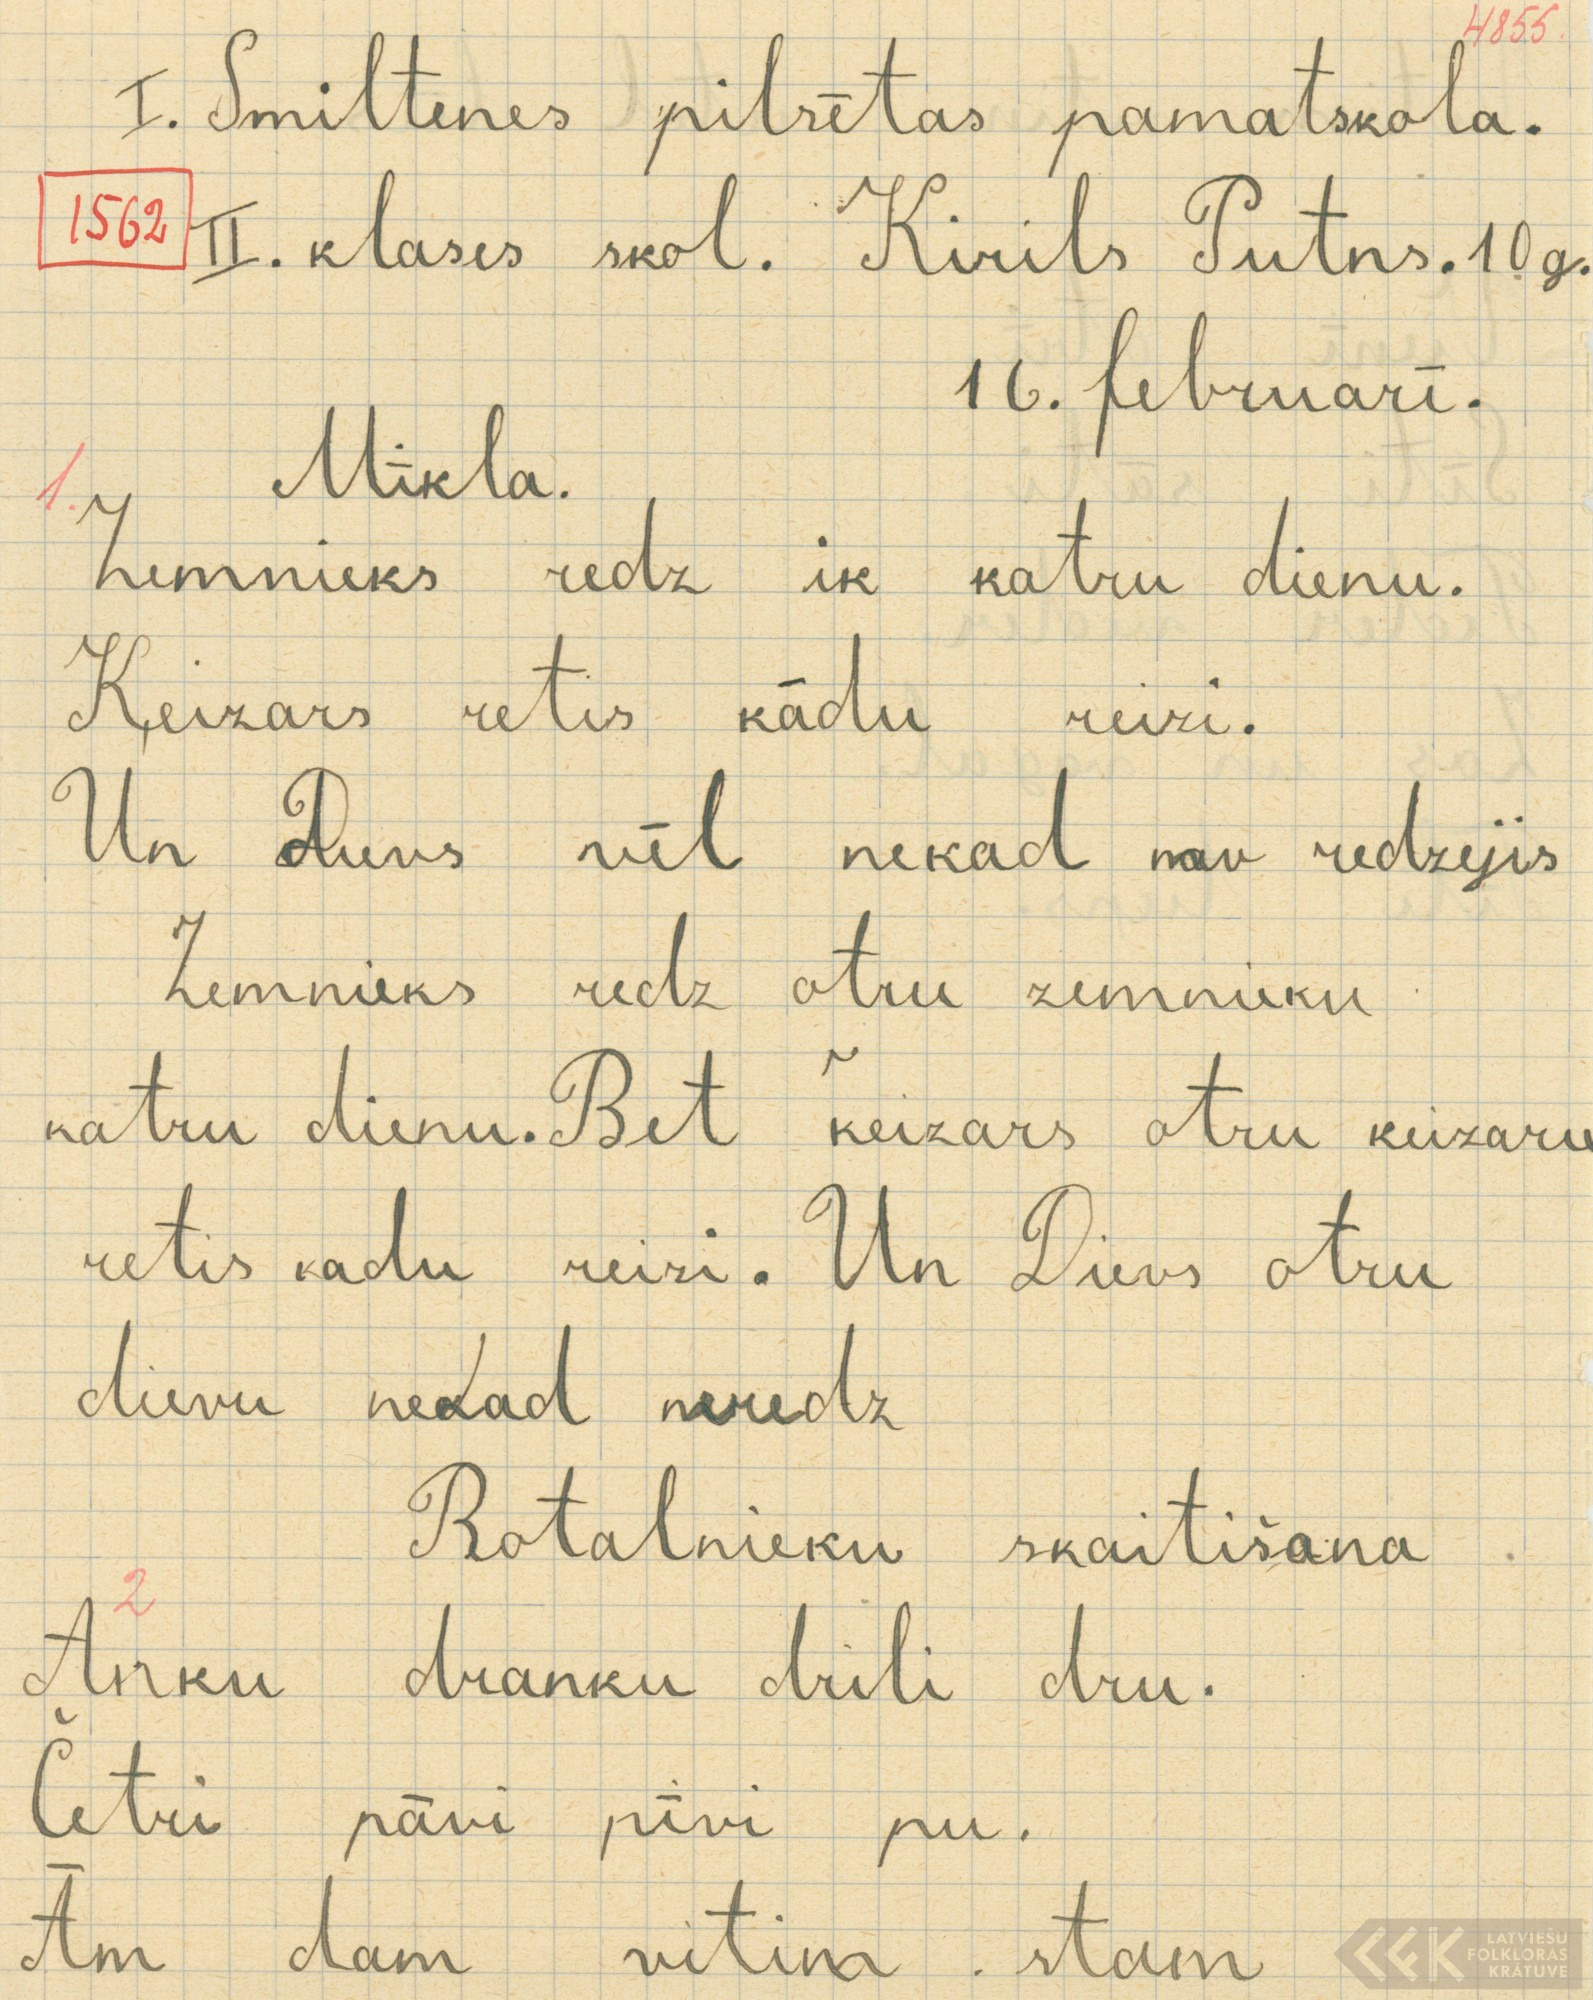 4855.
I. Smiltenes pilsētas pamatskola.
1562 II. klases skol. Kirils Putns. 10 g.
16. februarī.
Mīkla.
1. Zemnieks redz ik katru dienu.
Ķeizars retis kādu reizi.
Un Dievs vēl nekad nav redzejis
Zemnieks redz otru zemnieku
katru dienu. Bet ķeizars otru keizaru
retis kadu reizi. Un Dievs otru
dievu nekad neredz
Rotalnieku skaitišana
2
Anku dranku drili dru.
Četri pāvi pīvi pu.
Ām dam vitim stam
LATVIEŠU
FOLKLORAS
KRĀTUVE